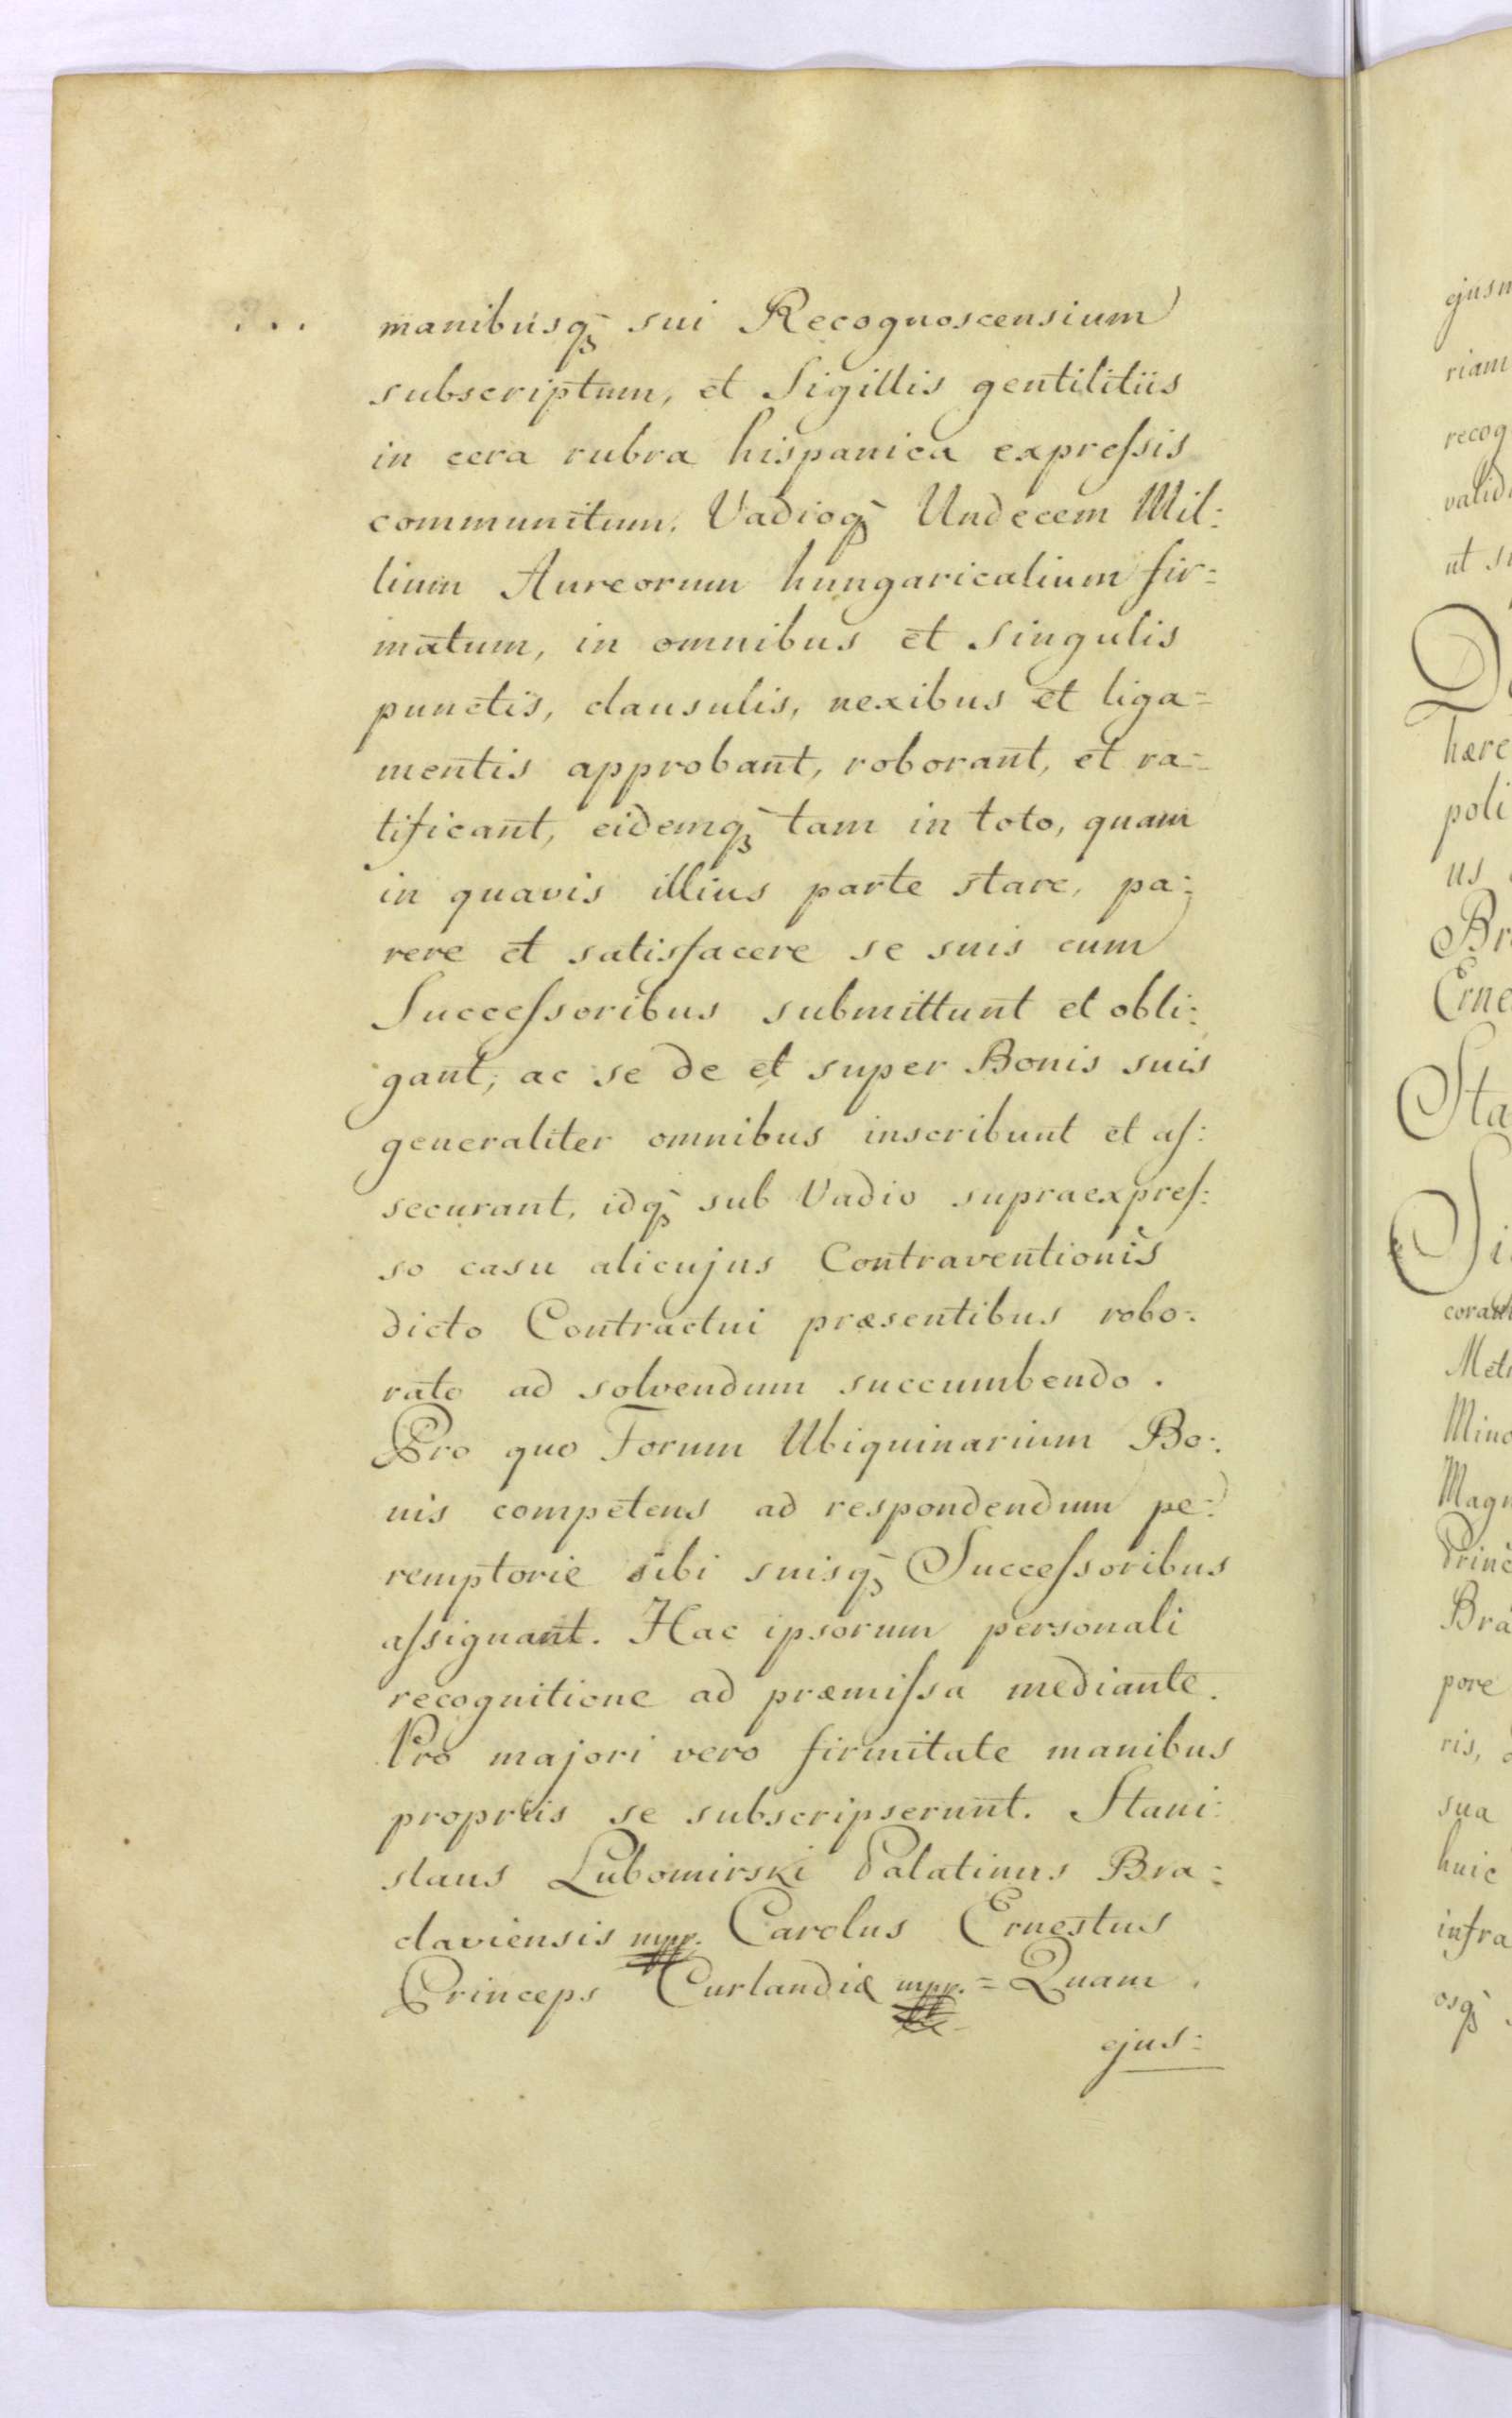 ... manibusq₃ sui Recognoscensium
subscriptum, et Sigillis gentilitiis
in cera rubra hispanica expreſsis
communitum, Vadioq₃ Undecem Mil:
lium Aureorum hungaricalium fir=
matum, in omnibus et singulis
punctis, clausulis, nexibus et liga=
mentis approbant, roborant, et ra=
tificant, eidemq₃ tam in toto, quam
in quavis illius parte stare, pa:
rere et satisfacere se suis cum
Succeſsoribus submittunt et obli:
gant, ac se de et super Bonis suis
generaliter omnibus inscribunt et aſ:
securant, idq₃ sub Vadio supraexpreſ:
so casu alicujus Contraventionis
dicto Contractui præsentibus robo:
rato ad solvendum succumbendo.
Pro quo Forum Ubiquinarium Bo:
nis competens ad respondendum pe:
remptorie sibi suisq₃ Succeſsoribus
aſsignant. Hac ipsorum personali
recognitione ad præmiſsa mediante.
Pro majori vero firmitate manibus
propriis se subscripserunt. Stani:
slaus Lubomirski Palatinus Bra=
claviensis mpp. Carolus Ernestus
Princeps Curlandiæ mpp. = Quam
ejus:
ejusm
riam
recog
valid
ut s
De
hære
poli
us
Br
Erne
Sta
Si
coram
Met
Mino
Magn
Princ
Bra
pore
ris,
sua
huic
infra
osq₃